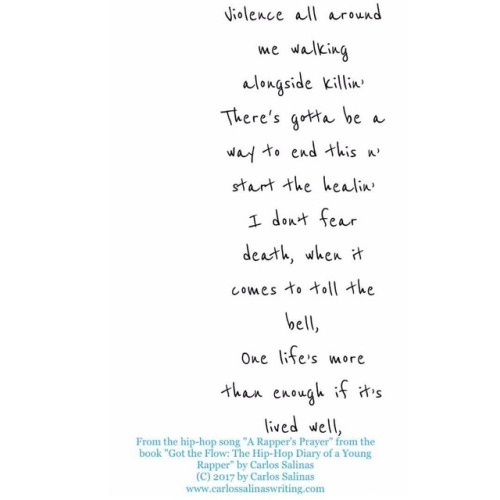 Violence all around
me walking
alongside killin'
There's gotta be a
way to end this n'
start the healin'
I don't fear
death, when it
comes to toll the
bell,
One life's more
than enough if it's
lived well,
From the hip-hop song "A Rapper's Prayer" from the
book "Got the Flow: The Hip-Hop Diary of a Young
Rapper" by Carlos Salinas
(C) 2017 by Carlos Salinas
www.carlossalinaswriting.com